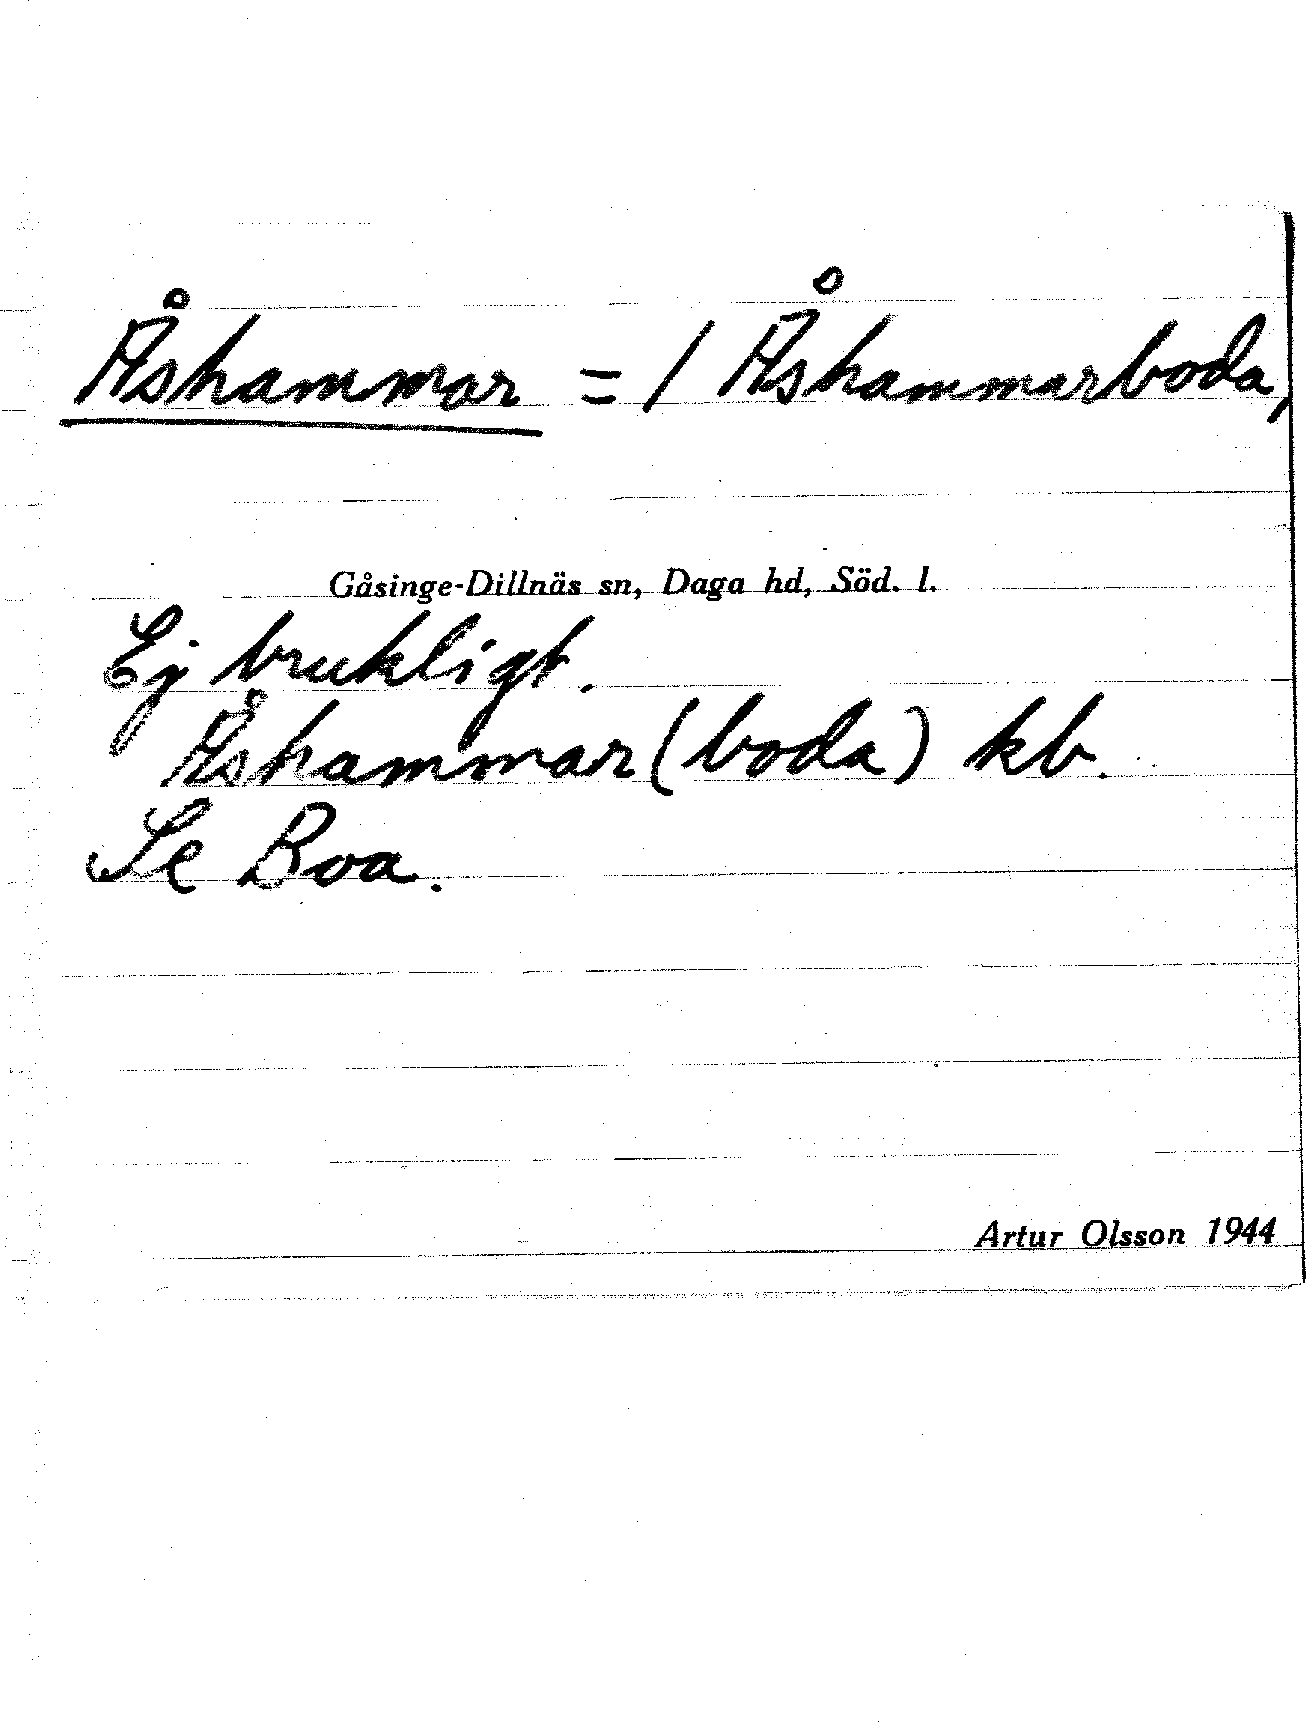 Åshammar = / Åshammarboda,
Gåsinge-Dillnäs sn, Daga hd, Söd. l.
Ej brukligt.
Åshammar (boda) kb.
Se Boa.
Artur Olsson 1944